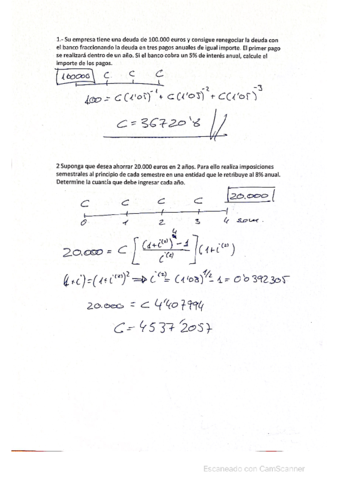 1.- Su empresa tiene una deuda de 100.000 euros y consigue renegociar la deuda con
el banco fraccionando la deuda en tres pagos anuales de igual importe. El primer pago
se realizará dentro de un año. Si el banco cobra un 5% de interés anual, calcule el
importe de los pagos.
100000 C C C
100 = C(1'05)^-1 + C(1'05)^-2 + C(1'05)^-3
C = 36720'8
2 Suponga que desea ahorrar 20.000 euros en 2 años. Para ello realiza imposiciones
semestrales al principio de cada semestre en una entidad que le retribuye al 8% anual.
Determine la cuantía que debe ingresar cada año.
20.000
C C C C
0 1 2 3 4 sem.
20.000 = C [ ((1+i^(2))^4 - 1) / i^(2) ] (1+i^(2))
(1+i) = (1+i^(2))^2 ⇒ i^(2) = (1'08)^1/2 - 1 = 0'0392305
20.000 = C 4'407994
C = 4537'2057
Escaneado con CamScanner